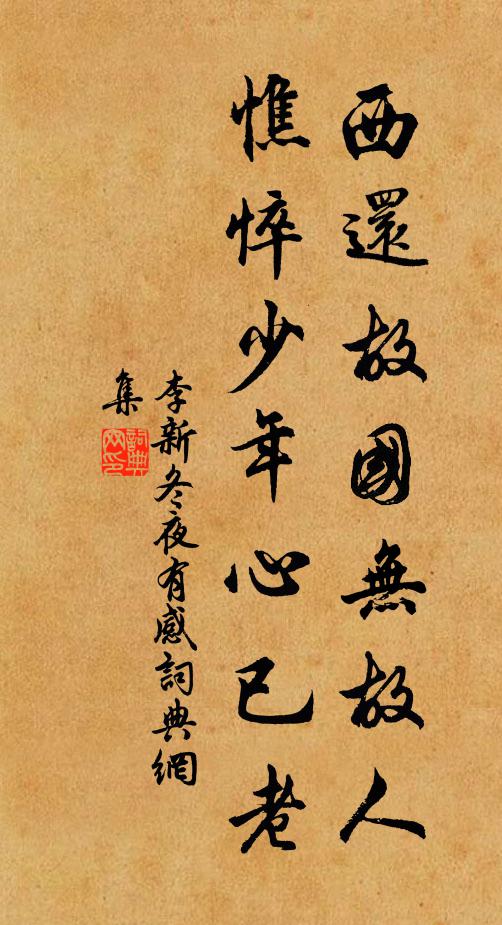 西還故國無故人
憔悴少年心已老
李新冬夜有感詞典網
集
詞典
网印